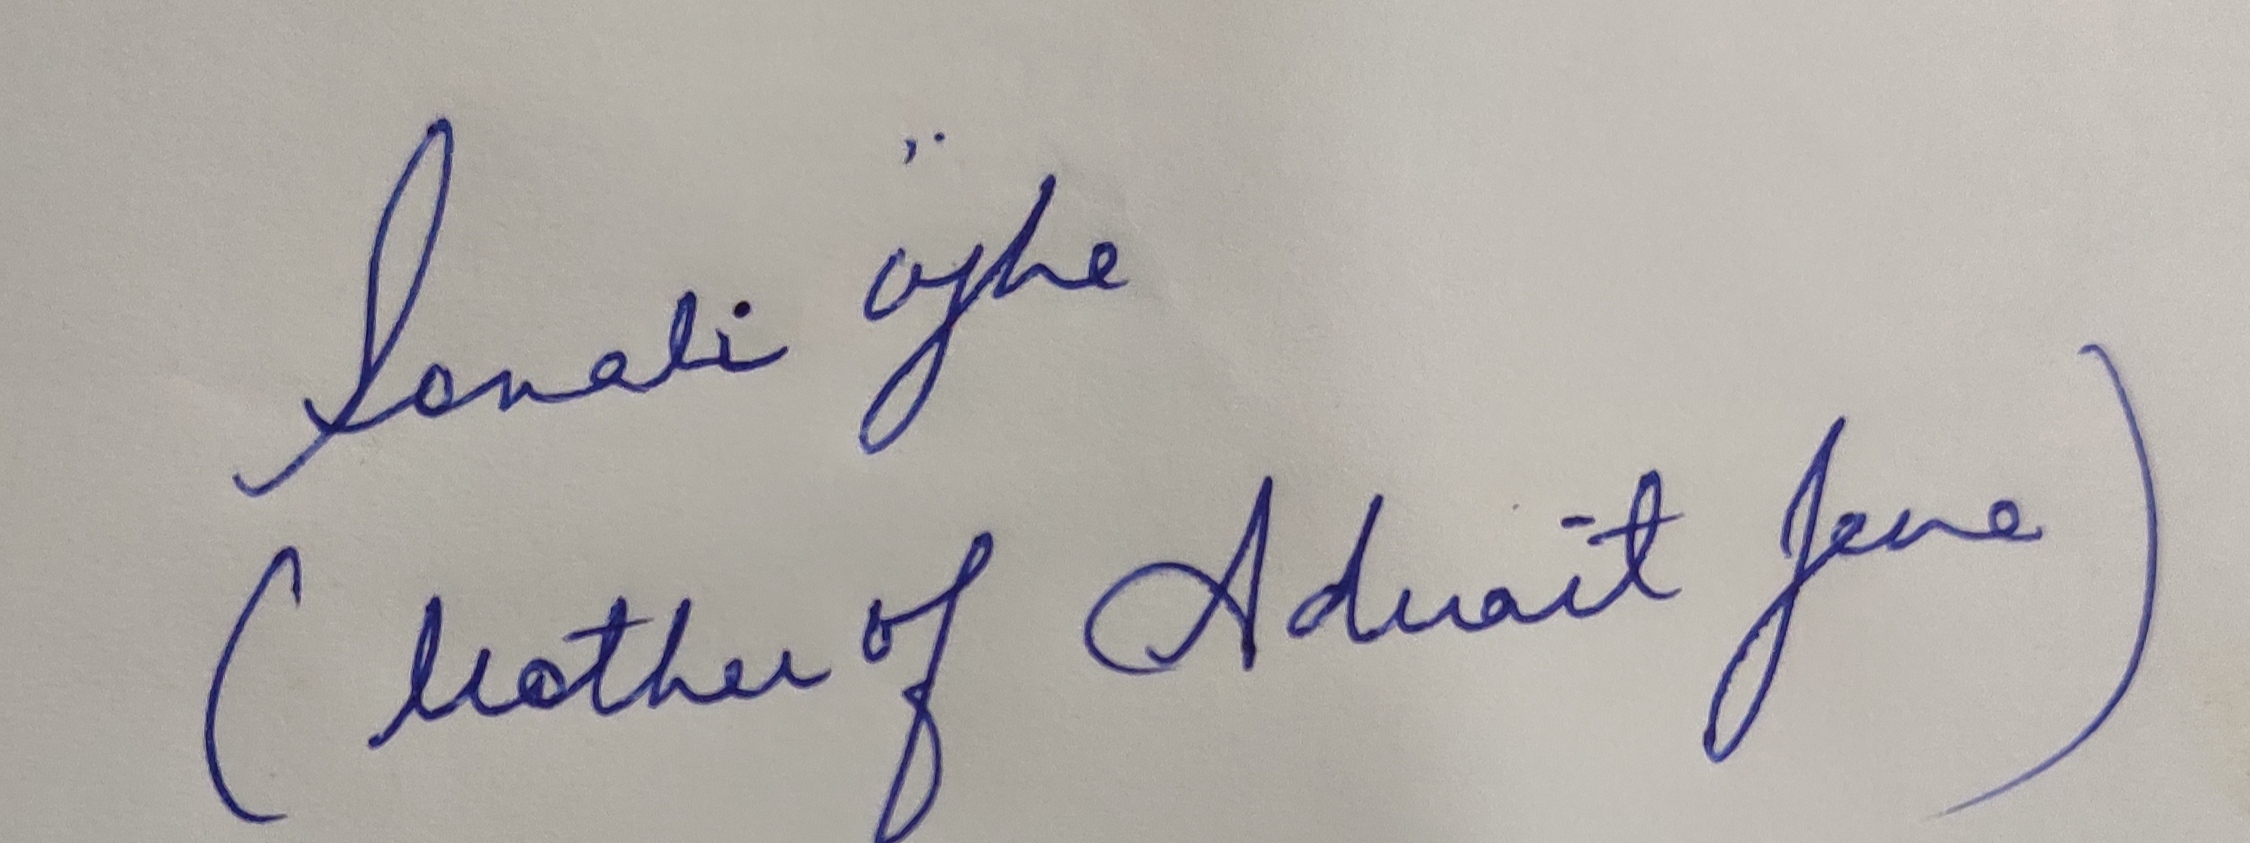 Sonali Ojhe
(Mother of Advait Jene)